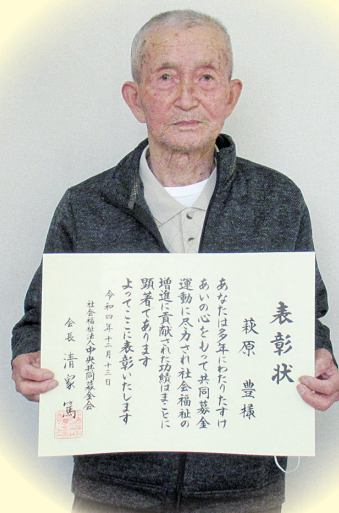 表彰状
萩原 豊 様
あなたは多年にわたりたすけ
あいの心をもって共同募金
運動に尽力され社会福祉の
増進に貢献された功績はまことに
顕著であります
よってここに表彰いたします
令和四年十二月十三日
社会福祉法人中央共同募金会
会長 清家 篤